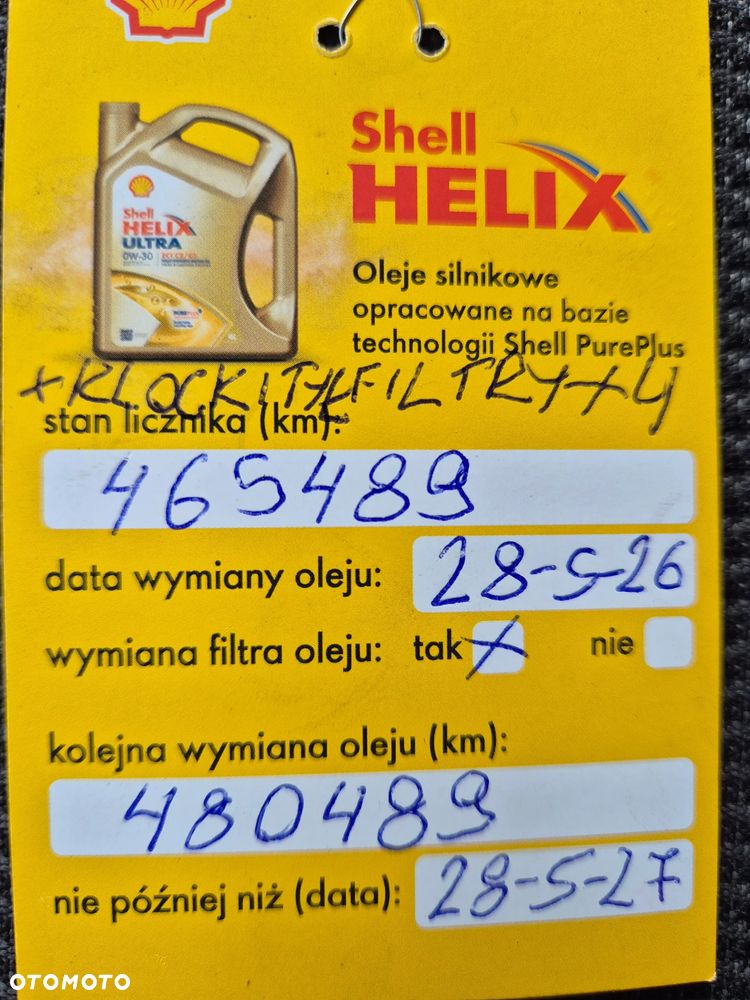 Shell
HELIX
Shell
HELIX
ULTRA
0W-30
Oleje silnikowe
opracowane na bazie
technologii Shell PurePlus
+KLOCKI TYŁ FILTRY x 4
stan licznika (km):
465489
data wymiany oleju: 28-5-26
wymiana filtra oleju: tak X nie
kolejna wymiana oleju (km):
480489
nie później niż (data): 28-5-27
OTOMOTO